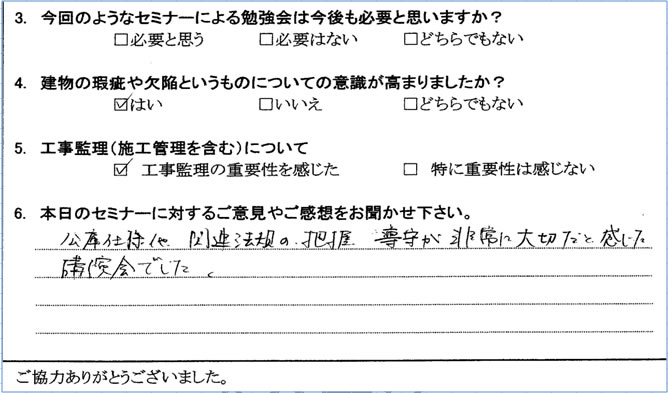 3. 今回のようなセミナーによる勉強会は今後も必要と思いますか？
□必要と思う □必要はない □どちらでもない
4. 建物の瑕疵や欠陥というものについての意識が高まりましたか？
☑はい □いいえ □どちらでもない
5. 工事監理（施工管理を含む）について
☑ 工事監理の重要性を感じた □ 特に重要性は感じない
6. 本日のセミナーに対するご意見やご感想をお聞かせ下さい。
公庫仕様他 関連法規の、把握 遵守が非常に大切だと感じた
講演会でした。
ご協力ありがとうございました。